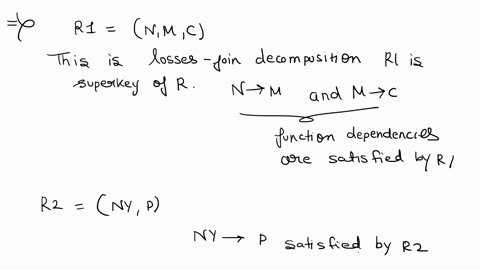 ⇒ R1 = (N, M, C)
This is losses-join decomposition R1 is
superkey of R.
N → M and M → C
function dependencies
are satisfied by R1
R2 = (NY, P)
NY → P satisfied by R2